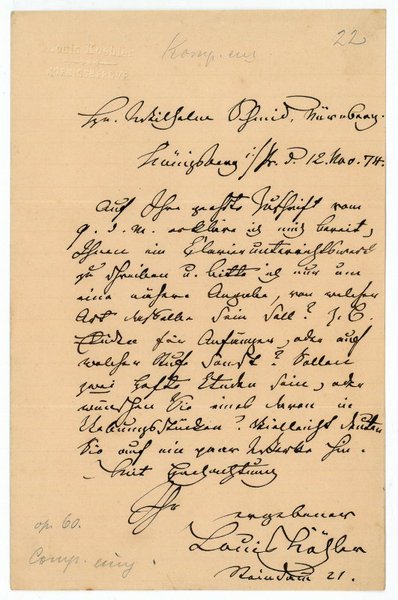 Louis Köhler
KÖNIGSBERG I/PR.
Komp. eing.
22
Hrn. Wilhelm Schmid, Nürnberg.
Königsberg i/Pr. d. 12. Nov. 74.
Auf Ihre geehrte Zuschrift vom
9. d. M. erkläre ich mich bereit,
Ihnen ein Clavierunterrichtswerk
zu schreiben u. bitte ich nur um
eine nähere Angabe, von welcher
Art dasselbe sein soll? z. B.
Etüden für Anfänger, oder auf
welcher Stufe sonst? Sollen
zwei Hefte Etuden sein, oder
wünschen Sie eines davon in
Uebungsstücken? Vielleicht deuten
Sie auf ein paar Werke hin.
Mit Hochachtung
Ihr ergebener
Louis Köhler
Steindamm 21.
op. 60.
Comp. eing.